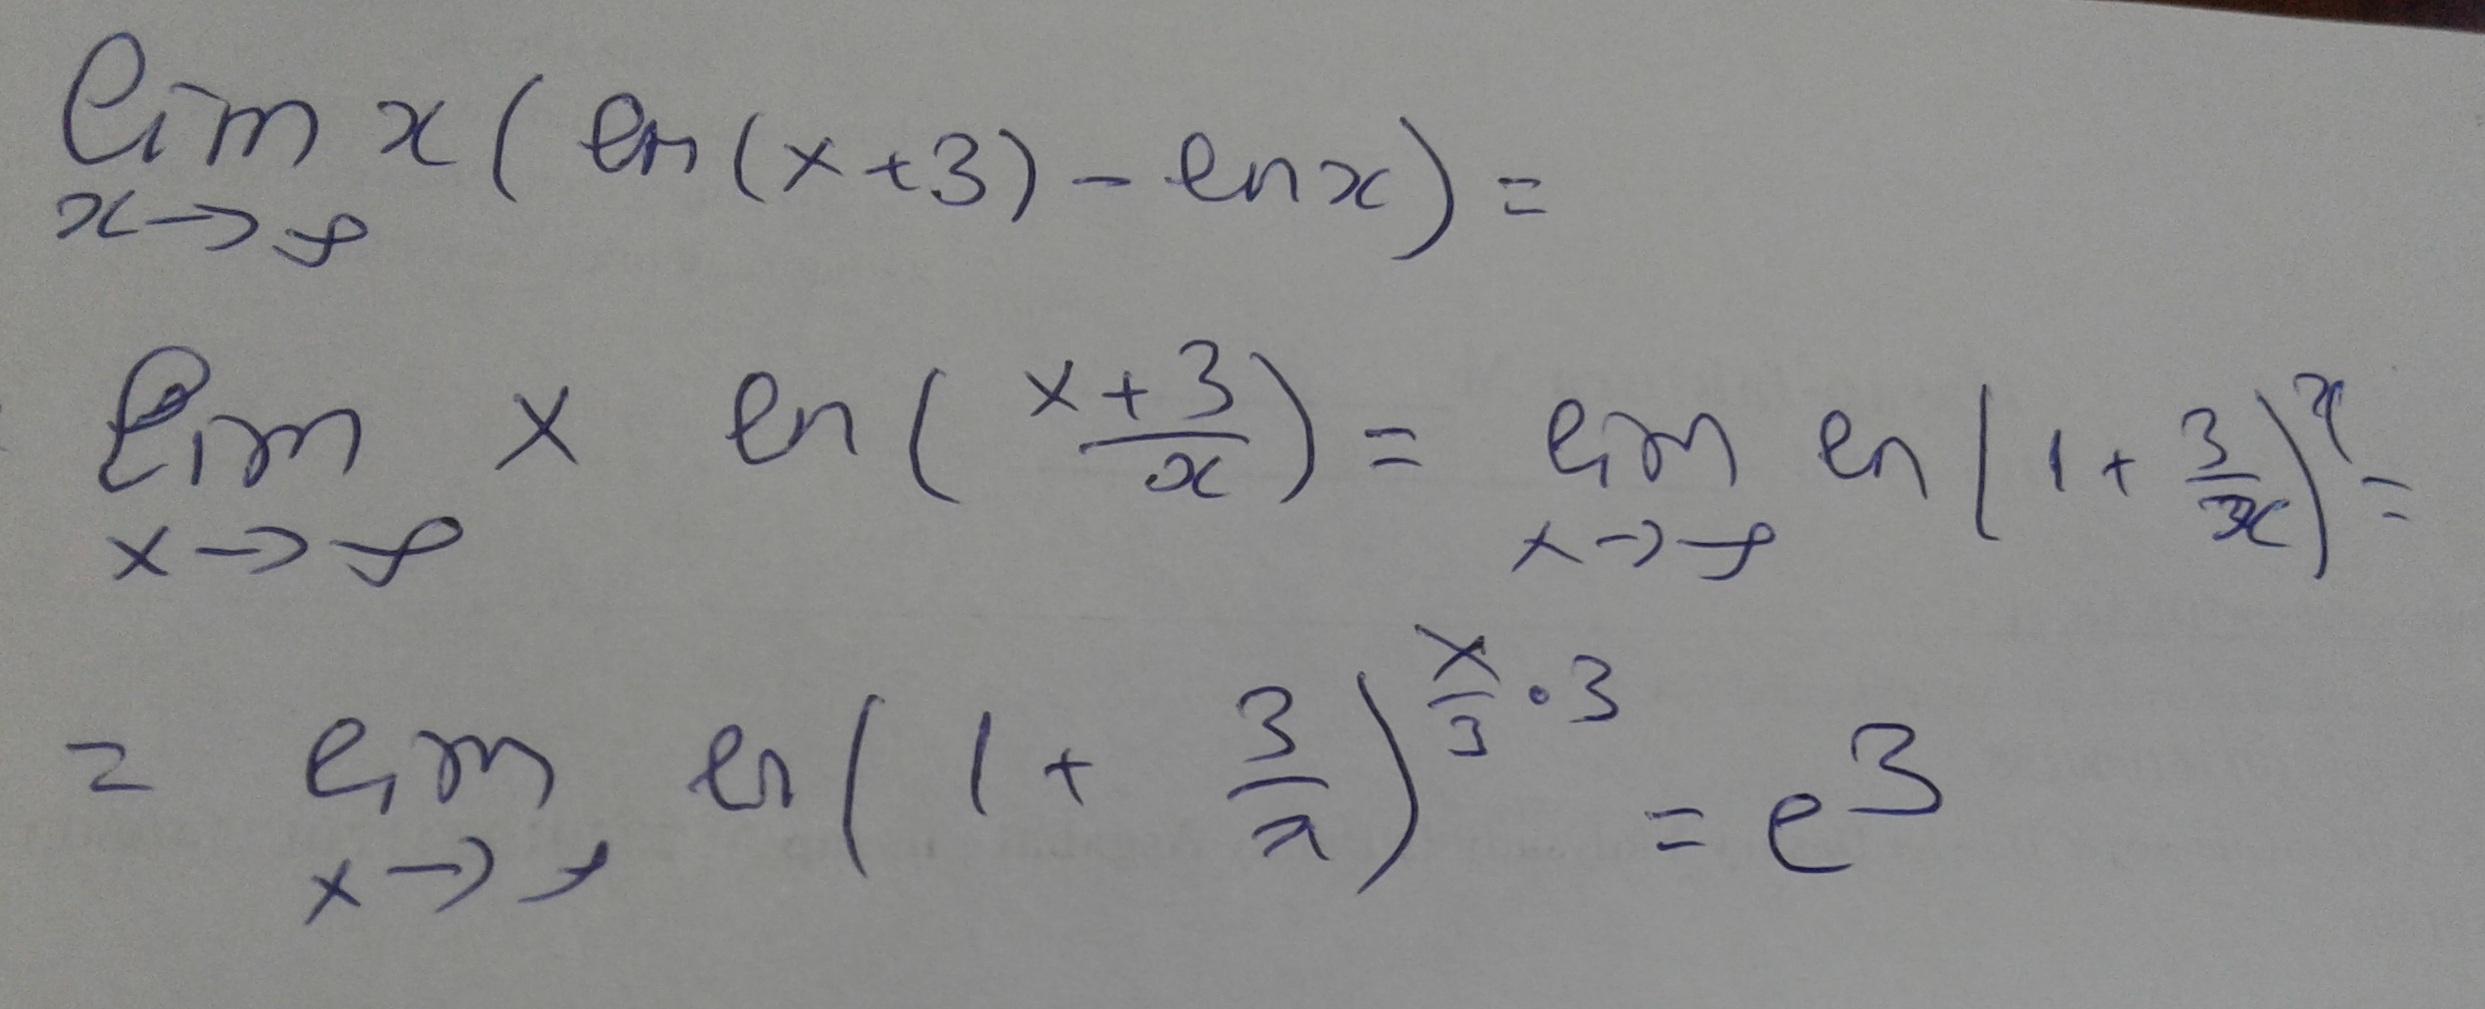 lim x→∞ x ( ln (x+3) - ln x ) =
lim x→∞ x ln ( x+3 / x ) = lim x→∞ ln ( 1 + 3/x )^x =
= lim x→∞ ln ( 1 + 3/x )^(x/3 · 3) = e^3